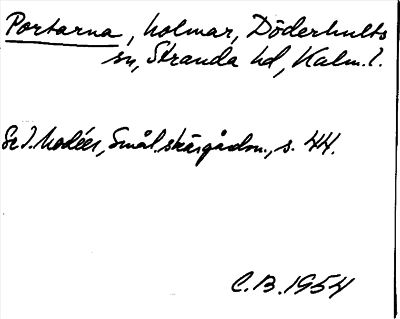 Portarna, holmar, Döderhults
sn, Stranda hd, Kalm. l.
Se I. Modéer, Smål. skärgårdsn., s. 44.
C.B. 1954